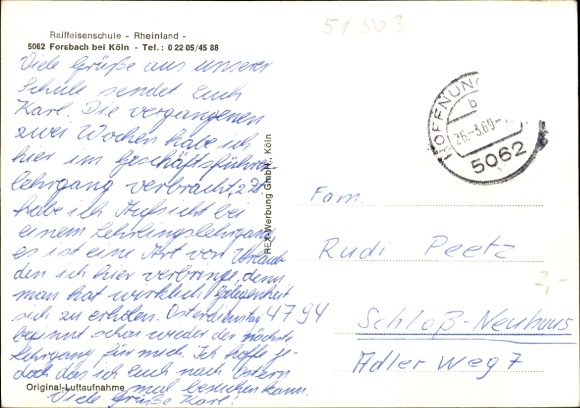 51503
Raiffeisenschule - Rheinland -
5062 Forsbach bei Köln - Tel.: 0 22 05/45 88
Viele Grüße aus unserer
Schule sendet Euch
Karl. Die vergangenen
zwei Wochen habe ich
hier im Geschäftsführer
lehrgang verbracht, z.Zt.
habe ich Aufsicht bei
einem Lehrlingslehrgang
es ist eine Art von Urlaub
den ich hier verbringe, denn
man hat wirklich Gelegenheit
sich zu erholen. Osterdienstag
beginnt schon wieder der nächste
Lehrgang für mich. Ich hoffe je-
doch das ich Euch nach Ostern
mal besuchen kann.
Viele Grüße Karl!
Original-Luftaufnahme
REX-Werbung GmbH., Köln
HOFFNUN
b
26.-3.69-1
5062
Fam.
Rudi Peetz
2,-
4794
Schloß-Neuhaus
Adler weg 7